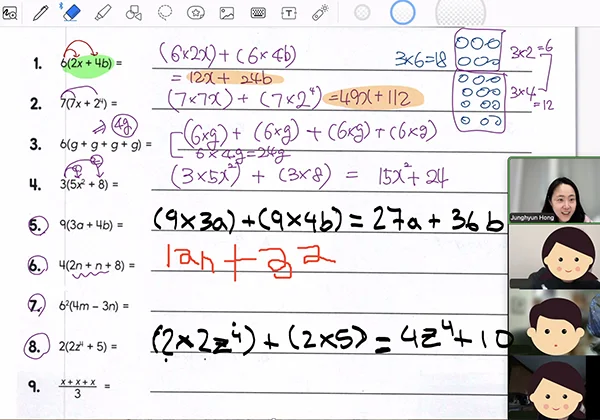 3×6=18
3×2=6
3×4=12
1. 6(2x + 4b) = (6×2x)+(6×4b)
= 12x + 24b
2. 7(7x + 2⁴) = (7×7x) + (7×2⁴) = 49x+112
⇒ 4g
3. 6(g + g + g + g) = (6×g) + (6×g) + (6×g) + (6×g)
6×4g=24g
4. 3(5x² + 8) = (3×5x²) + (3×8) = 15x²+24
5. 9(3a + 4b) = (9×3a)+(9×4b)=27a+36b
6. 4(2n + n + 8) = 12n+32
7. 6²(4m – 3n) =
8. 2(2z⁴ + 5) = (2×2z⁴)+(2×5)=4z⁴+10
9. x + x + x / 3 =
Junghyun Hong